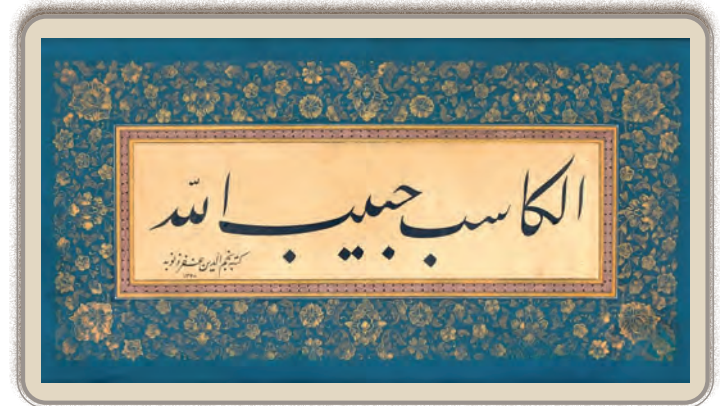 الكاسب حبيب الله
كتبه نجم الدين غفر ذنوبه